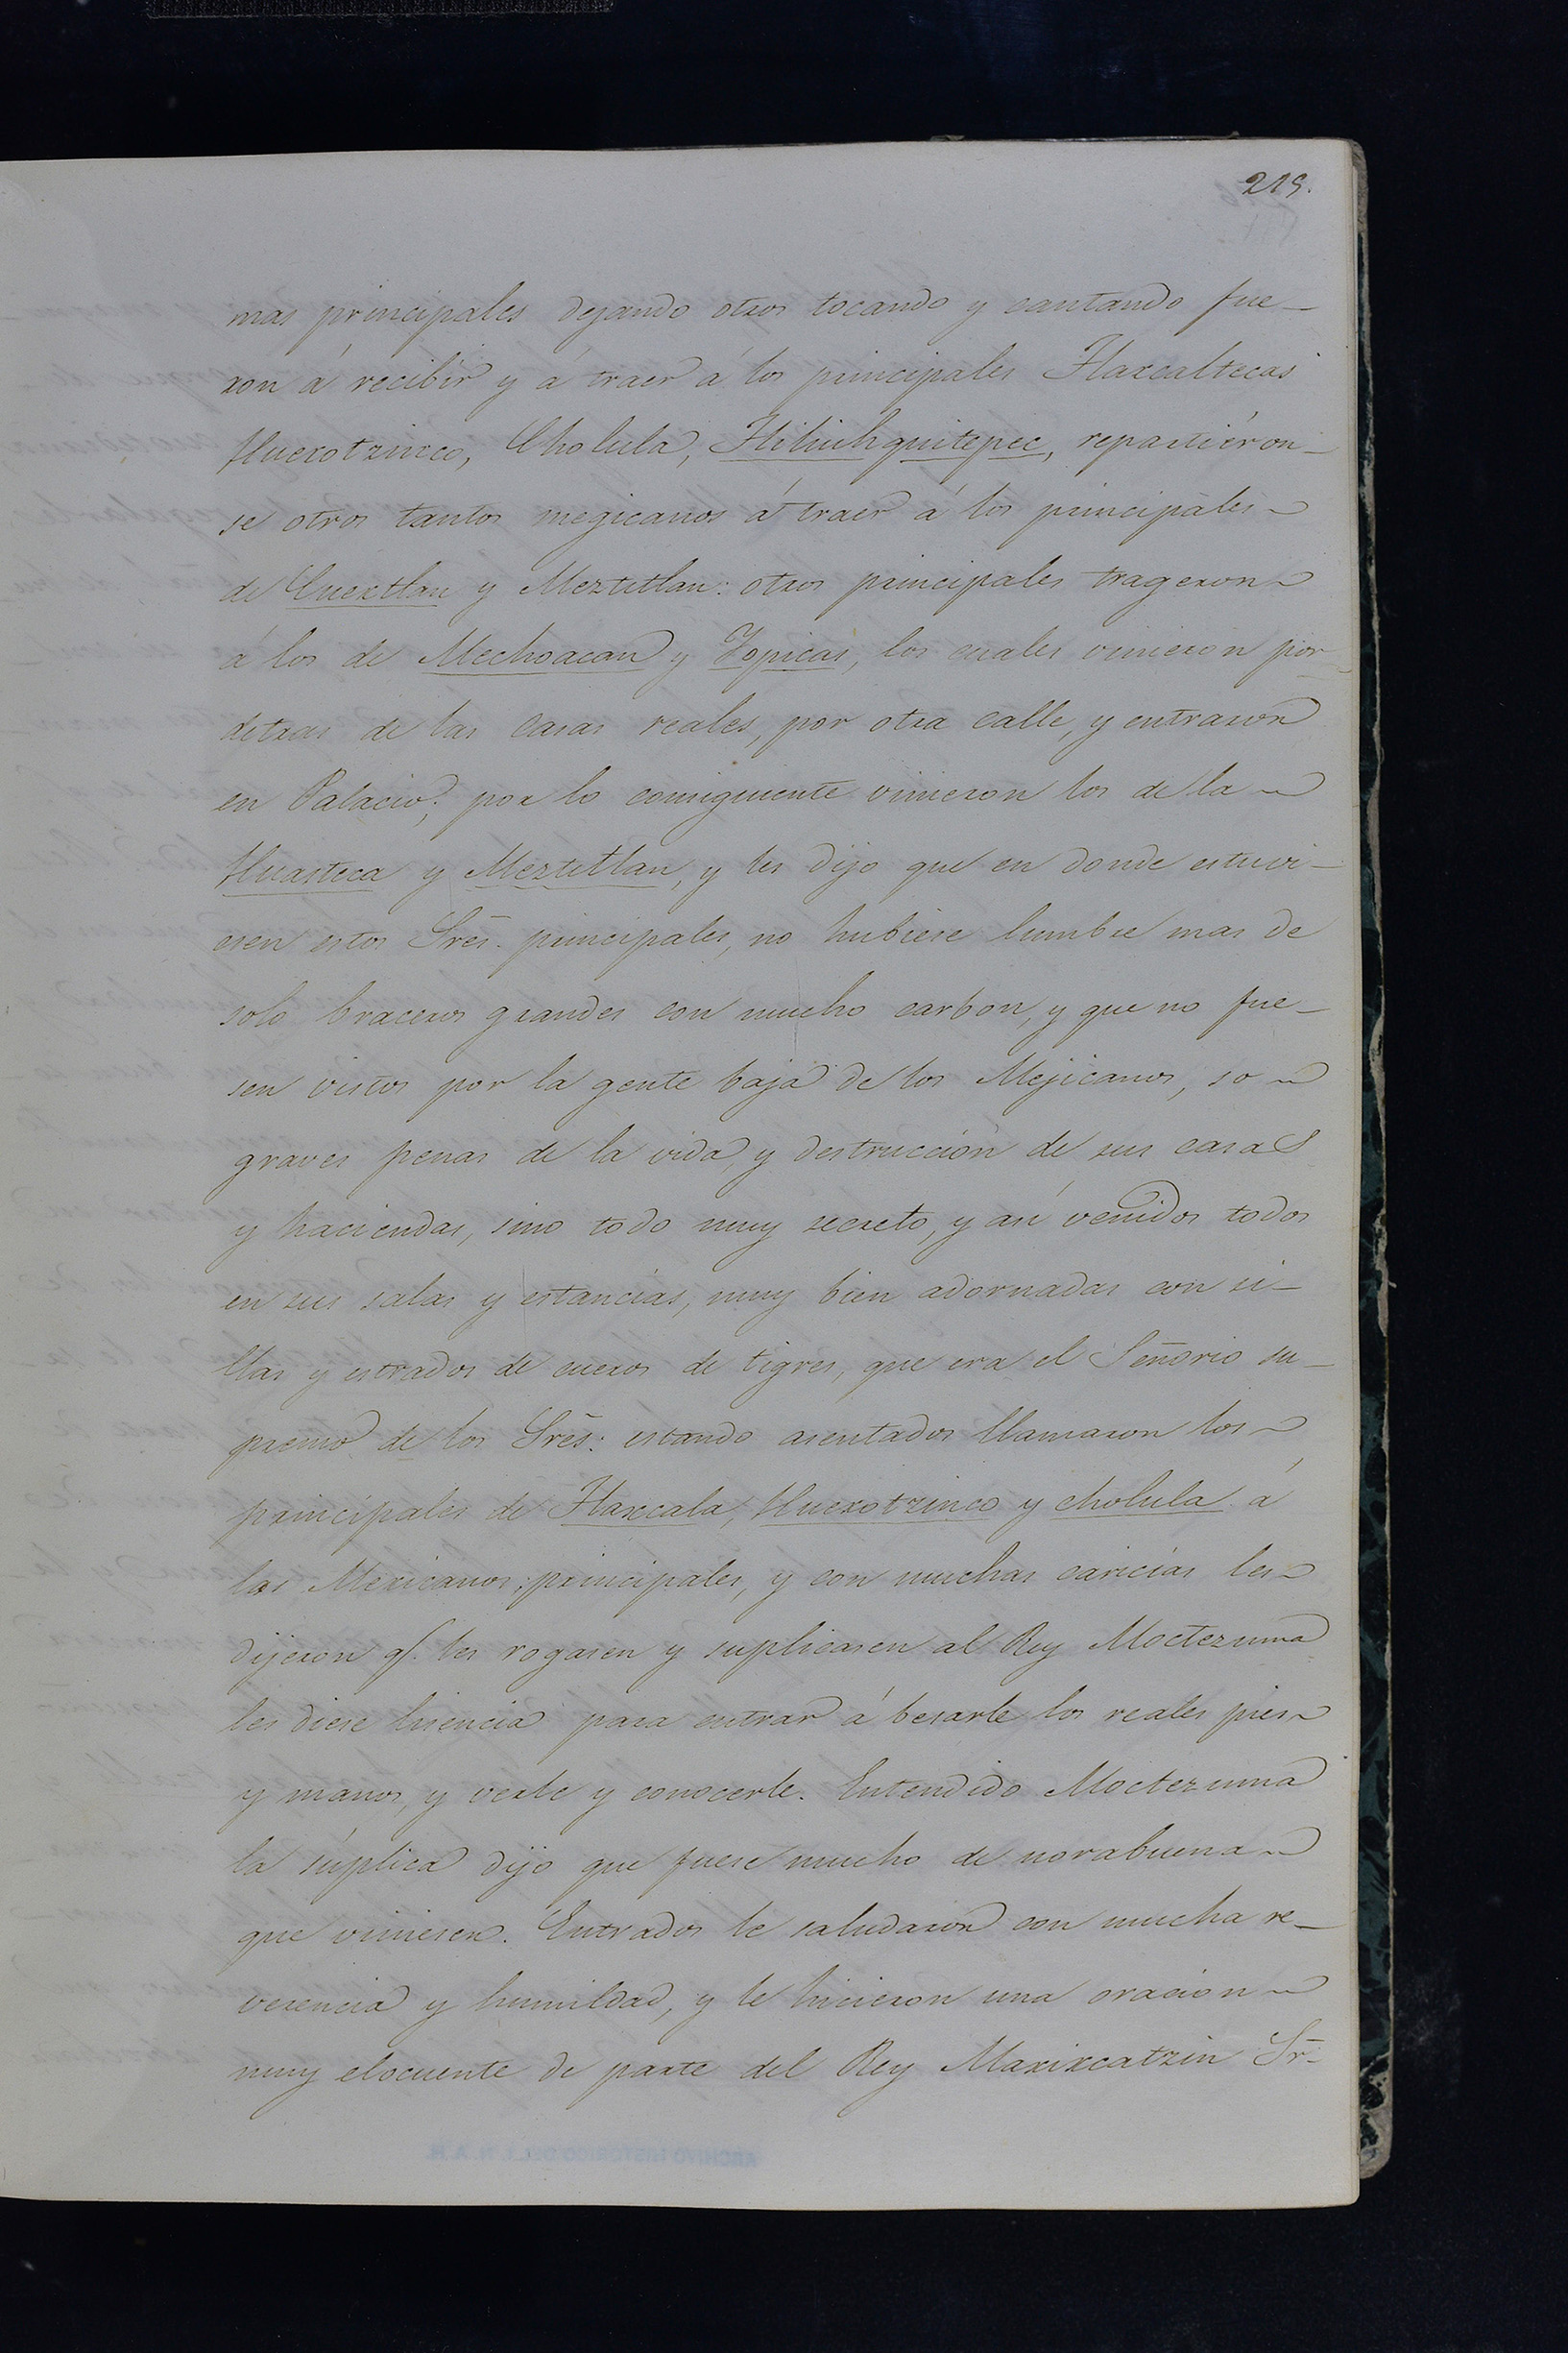 219.
mas principales dejando otros tocando y cantando fue-
ron á recibir y á traer á los principales Tlaxcaltecas
Huexotzinco, Cholula, Tliliuhquitepec, repartieron-
se otros tantos megicanos á traer á los principales
de Cuextlan y Meztitlan: otros principales trageron
á los de Mechoacan y Yopicas, los cuales vinieron por
detras de las casas reales, por otra calle, y entraron
en Palacio; por lo consiguiente vinieron los de la
Huasteca y Meztitlan, y les dijo que en donde estuvi-
esen estos Sres. principales, no hubiese lumbre mas de
solo braceros grandes con mucho carbon, y que no fue-
sen vistos por la gente baja de los Mejicanos, so
graves penas de la vida, y destrucción de sus casas
y haciendas, sino todo muy secreto, y así venidos todos
en sus salas y estancias, muy bien adornadas con si-
llas y estrados de cueros de tigres, que era el Señorio su-
premo de los Sres: estando asentados llamaron los
principales de Tlaxcala, Huexotzinco y cholula á
los Mexicanos principales, y con muchas caricias les
dijeron q. les rogasen y suplicasen al Rey Moctezuma
les diese lisencia para entrar á besarle los reales pies
y manos, y verle y conocerle. Entendido Moctezuma
la súplica dijo que fuese mucho de norabuena
que viniesen. Entrados le saludaron con mucha re-
verencia y humildad, y le hicieron una oracion
muy elocuente de parte del Rey Maxixcatzin Sr.
ARCHIVO HISTORICO DEL I. N. A. H.